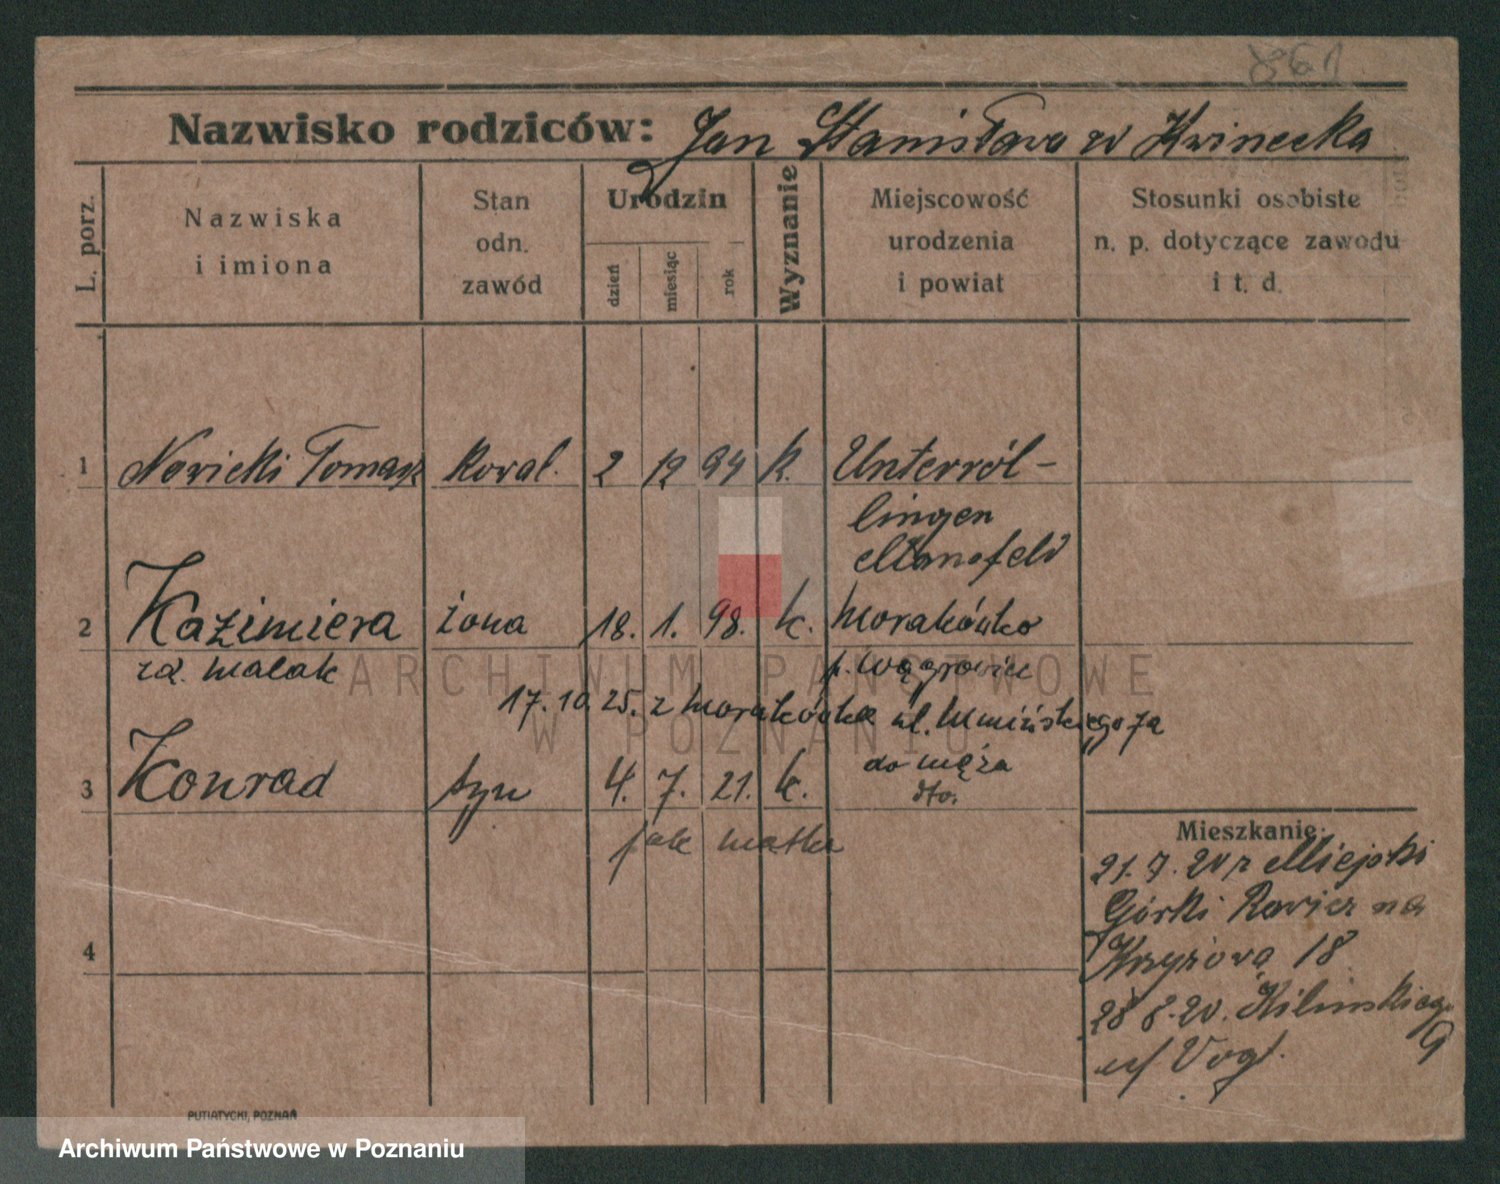 861
Nazwisko rodziców: Jan Stanisława zd Kwinecka
L. porz.
Nazwiska i imiona
Stan odn. zawód
Urodzin
dzień
miesiąc
rok
Wyznanie
Miejscowość urodzenia i powiat
Stosunki osobiste n. p. dotyczące zawodu i t. d.
1 Nowicki Tomasz kowal. 2 12 94 k. Unterröl-
lingen
Mansfeld
2 Kazimiera żona 18. 1. 98. k. Morakówko
zd. Malak p. Wągrowiec
17.10.25. z Morakówka ul. 7a
do męża
3 Konrad syn 4. 7. 21. k. dto.
jak matka
4
Mieszkanie:
21.7.20 z Miejski
Górki Rawicz na
Krzyżową 18
28 8.20. Kilinskiego 9
u/ Vogt.
PUTIATYCKI, POZNAŃ
ARCHIWUM PAŃSTWOWE
W POZNANIU
Archiwum Państwowe w Poznaniu